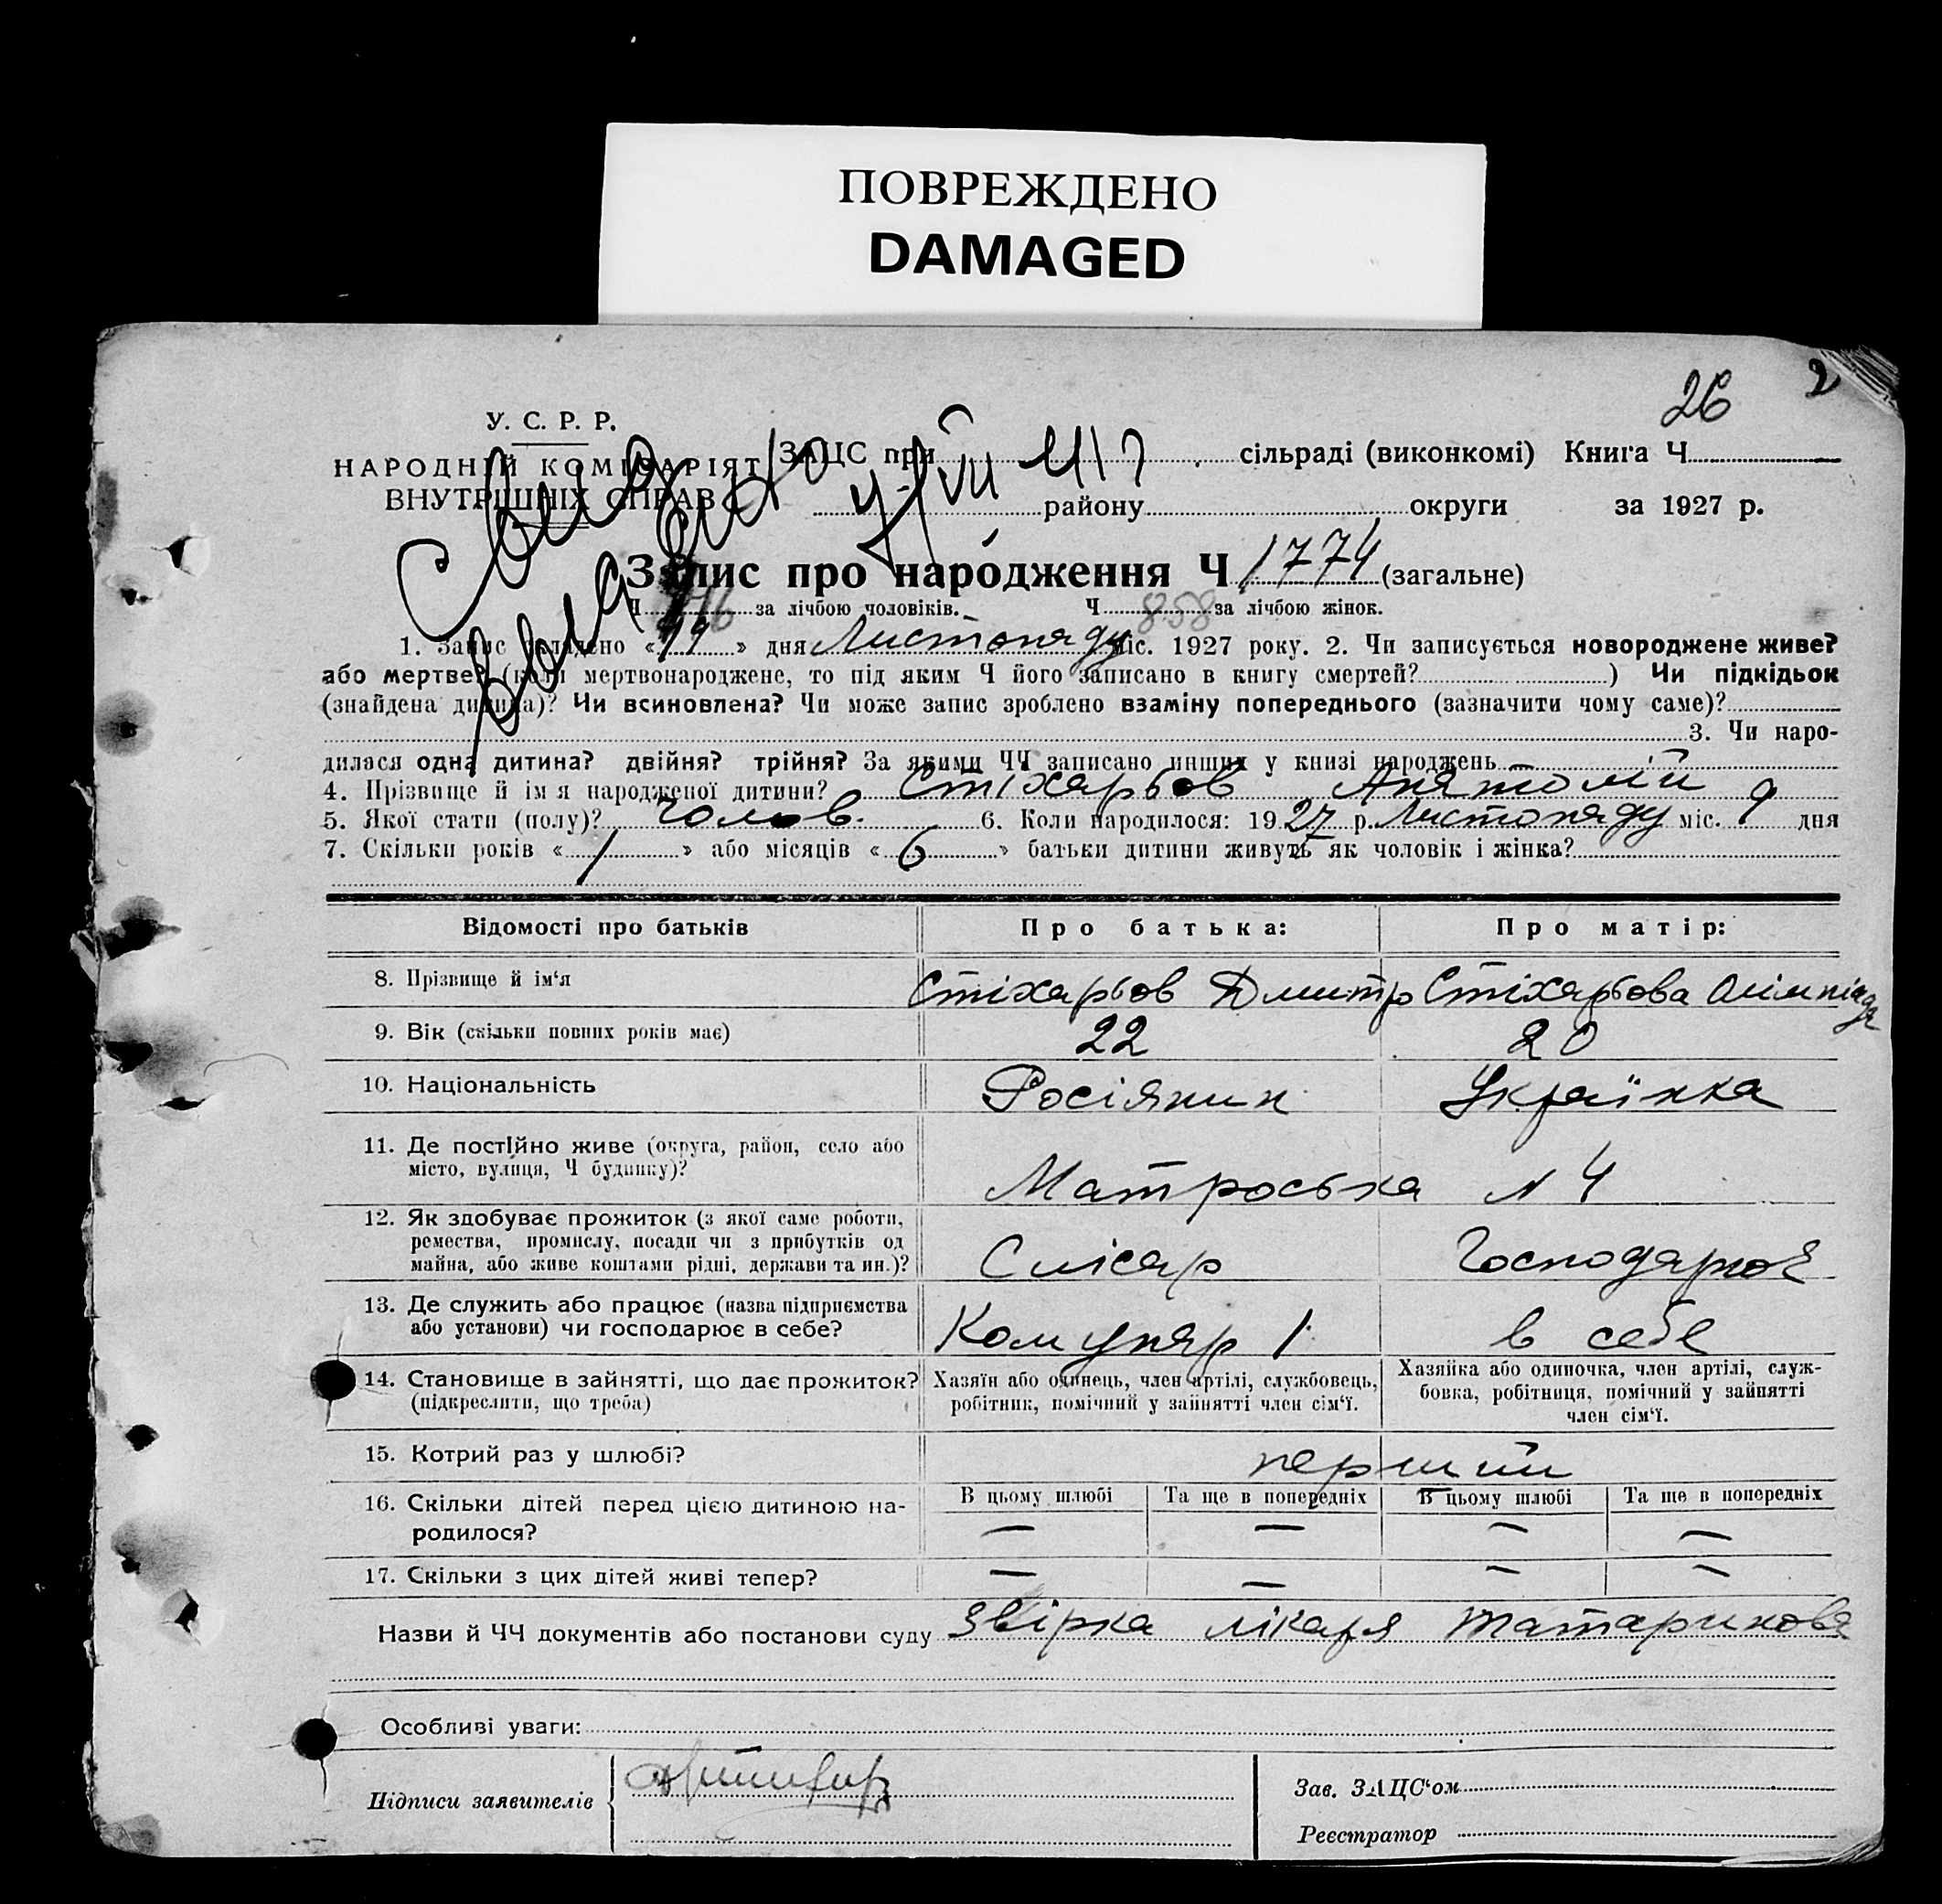 ПОВРЕЖДЕНО
DAMAGED
26 2
У. С. Р. Р.
НАРОДНІЙ КОМІСАРІЯТ
ВНУТРІШНІХ СПРАВ
ЗАЦС при сільраді (виконкомі) Книга Ч
району округи за 1927 р.
Запис про народження Ч 1774 (загальне)
Ч за лічбою чоловіків. Ч 858 за лічбою жінок.
1. Запис складено « » дня Листопаду міс. 1927 року. 2. Чи записується новороджене живе?
або мертве? (коли мертвонароджене, то під яким Ч його записано в книгу смертей? ) Чи підкідьок
(знайдена дитина)? Чи всиновлена? Чи може запис зроблено взаміну попереднього (зазначити чому саме)?
3. Чи наро-
дилася одна дитина? двійня? трійня? За якими ЧЧ записано инших у книзі народжень
4. Прізвище й ім я народженої дитини? Стіхарьов Анатолій
5. Якої стати (полу)? Чолов. 6. Коли народилося: 1927 р. Листопаду міс. 9 дня
7. Скільки років « 1 » або місяців « 6 » батьки дитини живуть як чоловік і жінка?
Відомості про батьків Про батька: Про матір:
8. Прізвище й ім'я Стіхарьов Дмитр Стіхарьова Олімпіяда
9. Вік (скільки повних років має) 22 20
10. Національність Росіянин Українка
11. Де постІйно живе (округа, район, село або
місто, вулиця, Ч будинку)? Матроська N 4
12. Як здобуває прожиток (з якої саме роботи,
ремества, промислу, посади чи з прибутків од
майна, або живе коштами рідні, держави та ин.)? Слісар Господарює
13. Де служить або працює (назва підприємства
або установи) чи господарює в себе? Комунар 1 в себе
14. Становище в зайнятті, що дає прожиток?
(підкреслити, що треба)
Хазяїн або одинець, член артілі, службовець,
робітник, помічний у зайнятті член сім'ї.
Хазяйка або одиночка, член артілі, служ-
бовка, робітниця, помічний у зайнятті
член сім'ї.
15. Котрий раз у шлюбі? перший
16. Скільки дітей перед цією дитиною на-
родилося?
В цьому шлюбі Та ще в попередніх В цьому шлюбі Та ще в попередніх
— — — —
17. Скільки з цих дітей живі тепер? — — — —
Назви й ЧЧ документів або постанови суду Звірка лікаря Татаринова
Особливі уваги:
Підписи заявителів
Зав. ЗАЦС'ом
Реєстратор